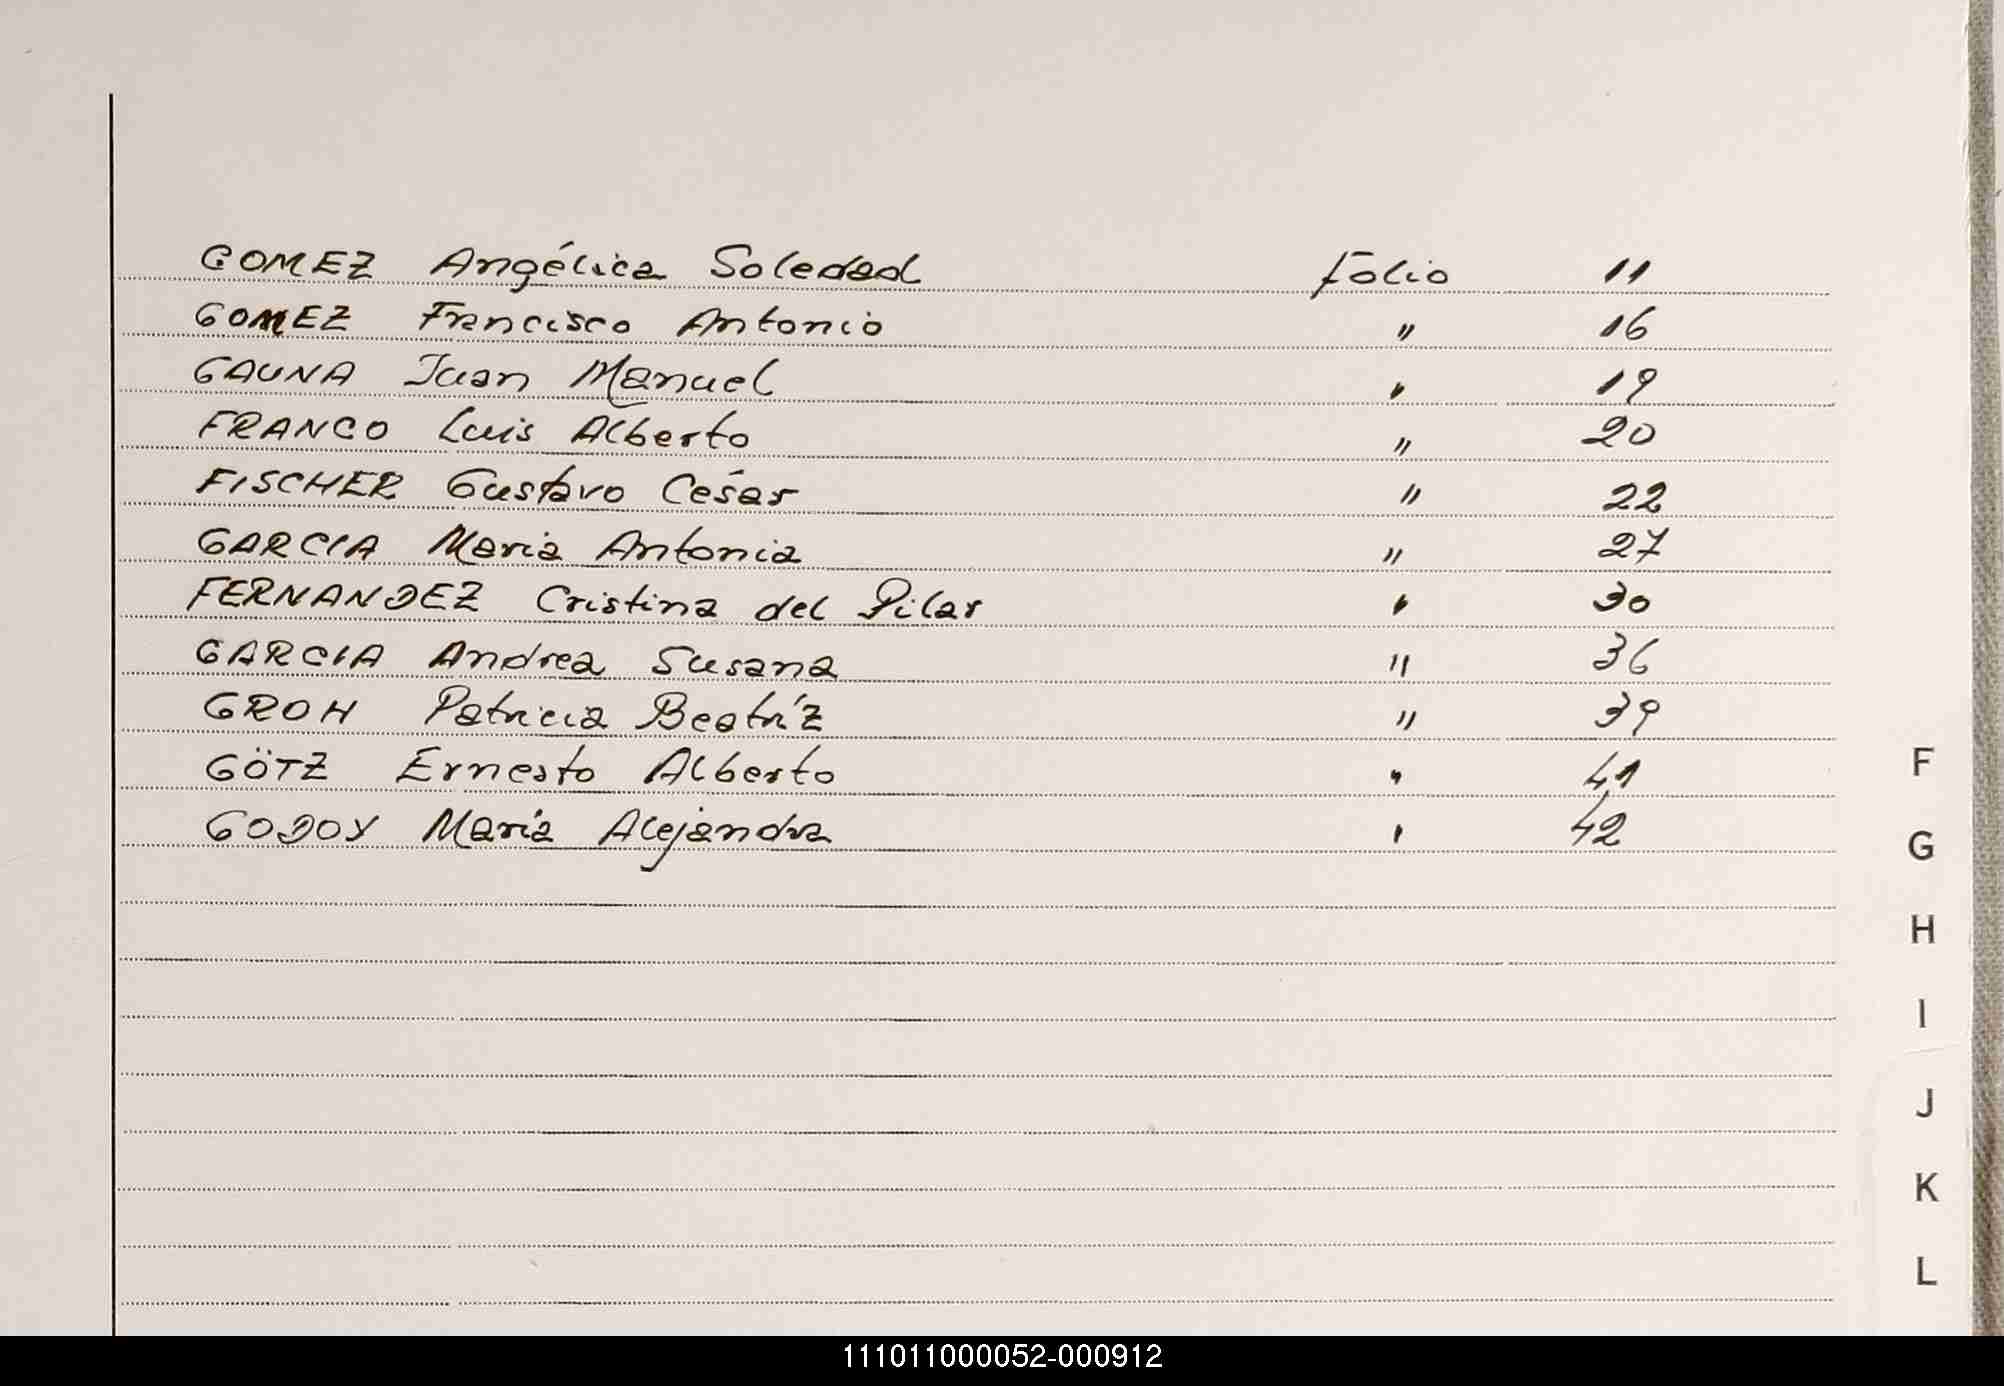 GOMEZ Angélica Soledad folio 11
GOMEZ Francisco Antonio " 16
GAUNA Juan Manuel " 19
FRANCO Luis Alberto " 20
FISCHER Gustavo César " 22
GARCIA Maria Antonia " 27
FERNANDEZ Cristina del Pilar " 30
GARCIA Andrea Susana " 36
GROH Patricia Beatríz " 39
GÖTZ Ernesto Alberto " 41
GODOY María Alejandra " 42
F
G
H
I
J
K
L
111011000052-000912